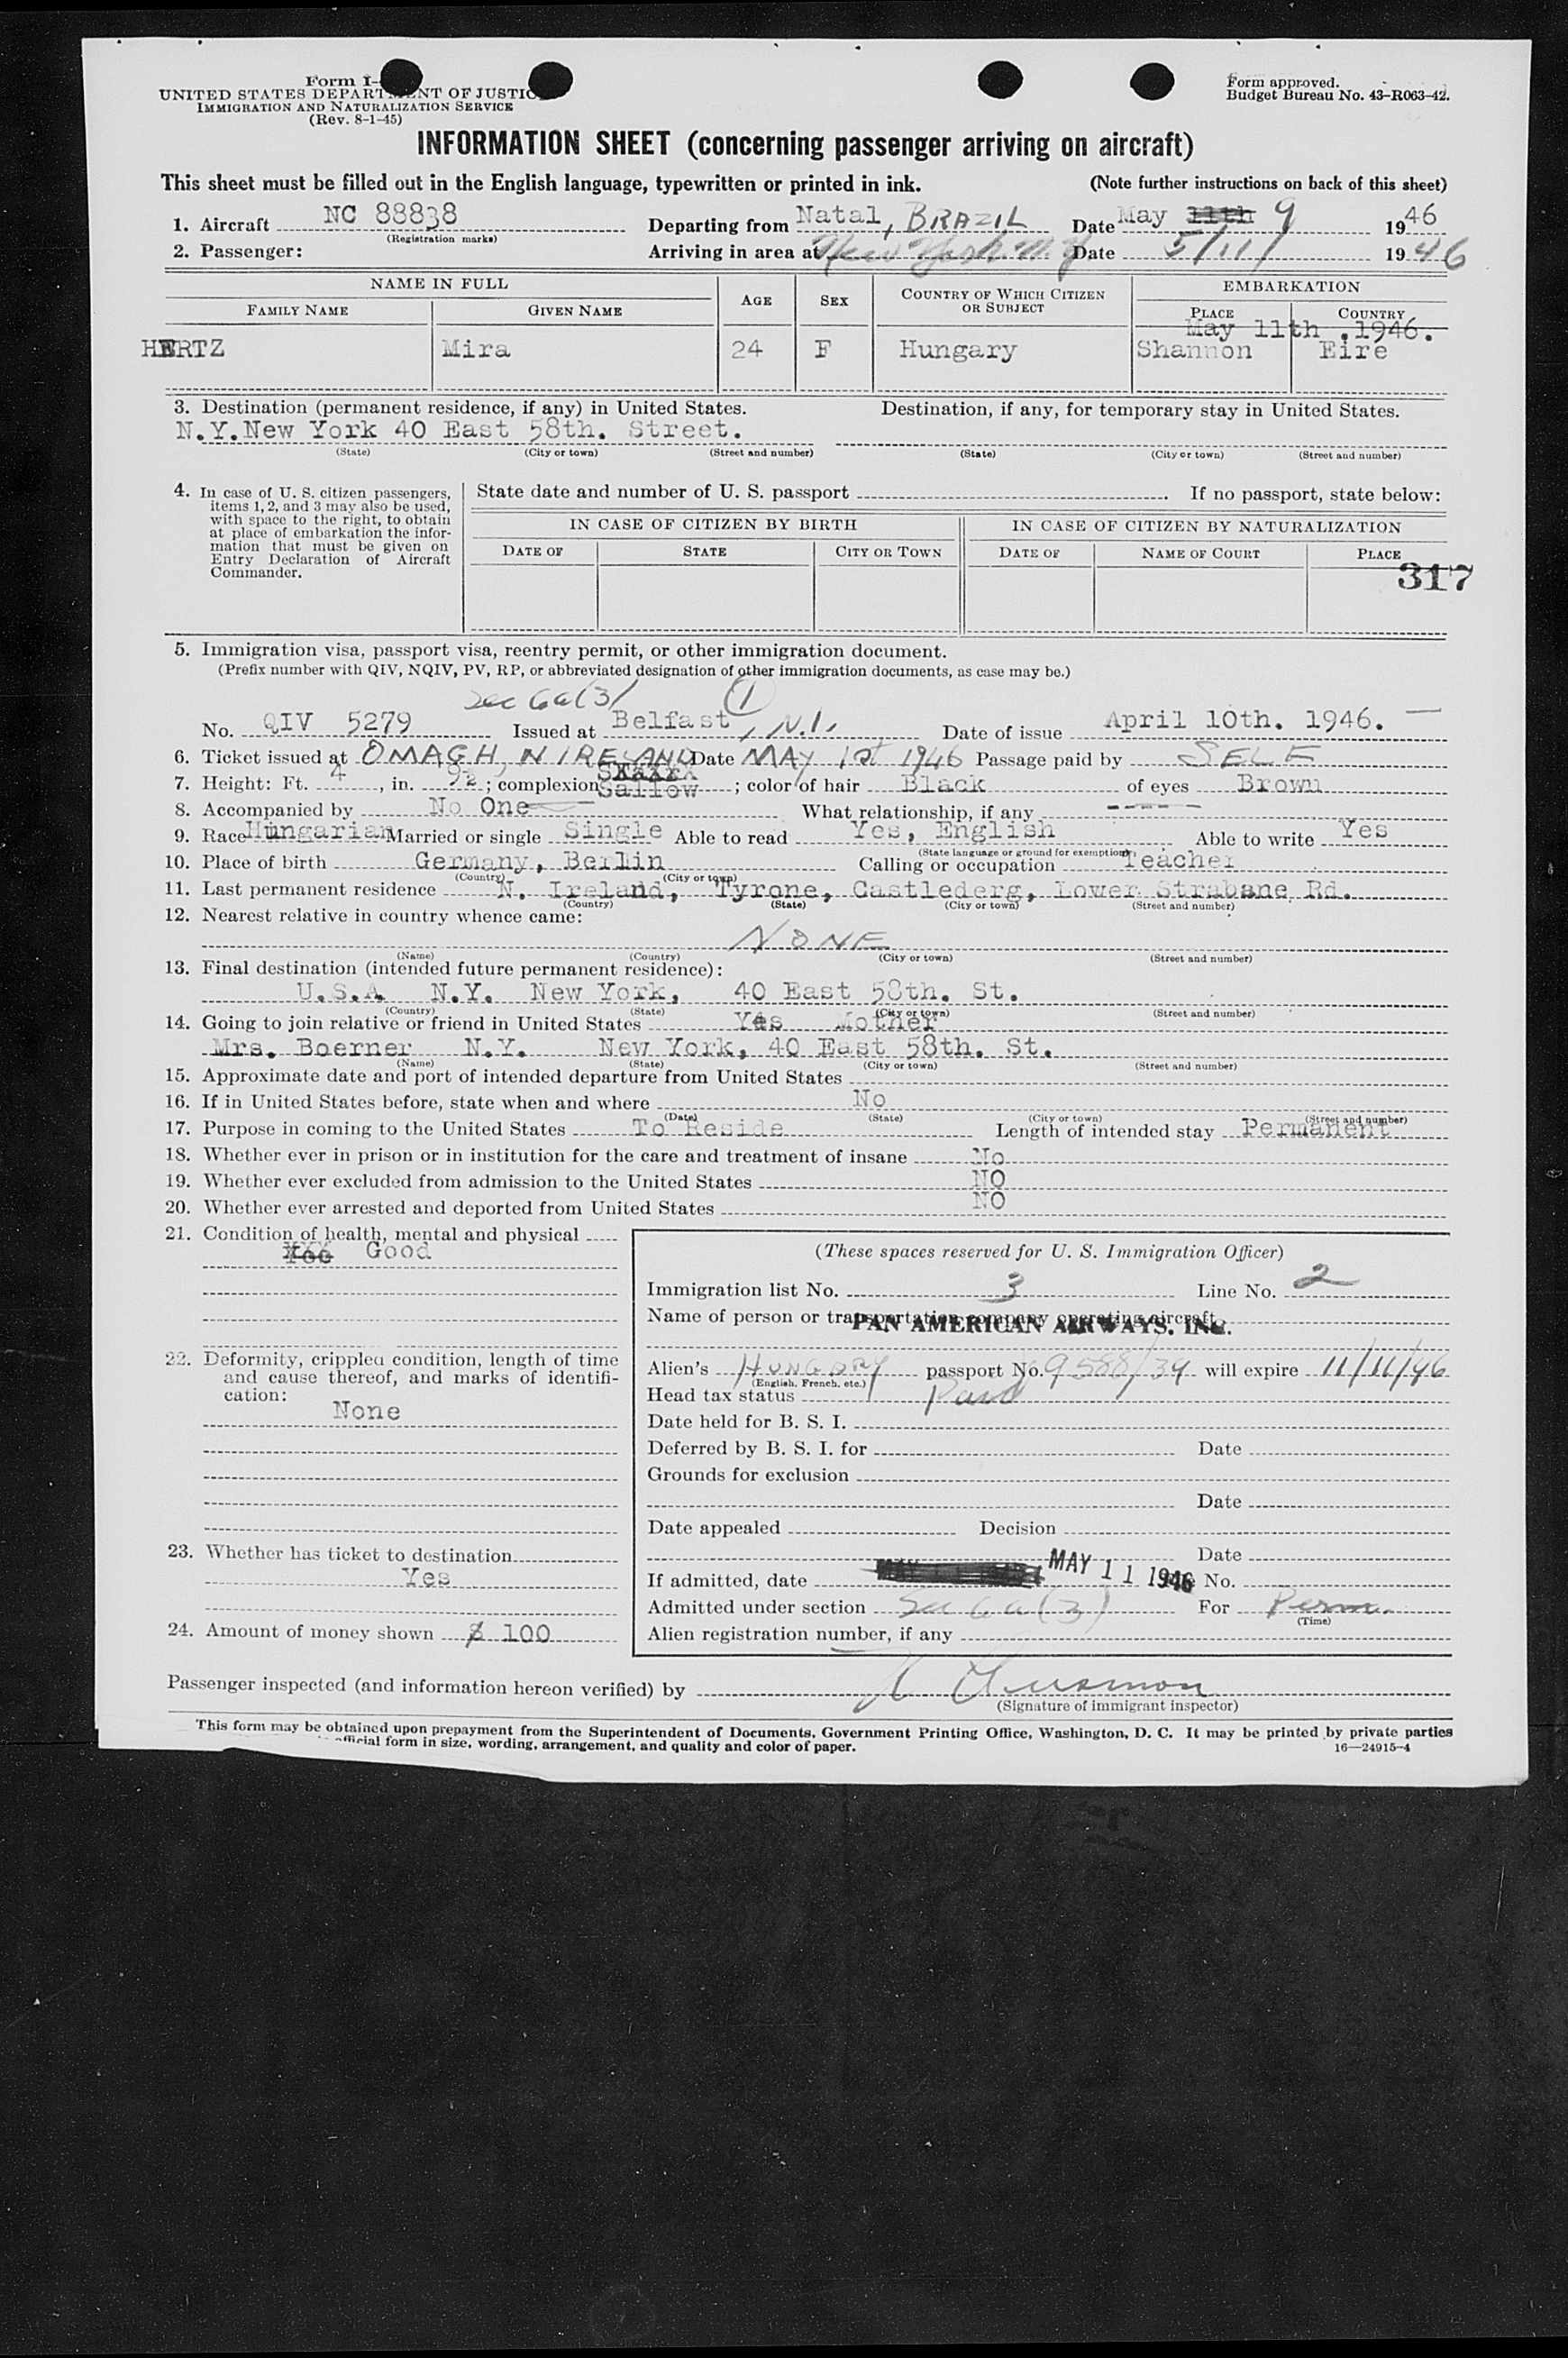 Form I-
UNITED STATES DEPARTMENT OF JUSTICE
IMMIGRATION AND NATURALIZATION SERVICE
(Rev. 8-1-45)
Form approved.
Budget Bureau No. 43-R063-42.
INFORMATION SHEET (concerning passenger arriving on aircraft)
This sheet must be filled out in the English language, typewritten or printed in ink. (Note further instructions on back of this sheet)
1. Aircraft NC 88838 Departing from Natal, BRAZIL Date May 11th 9 1946
(Registration marks)
2. Passenger: Arriving in area at New York N.Y Date 5/11/ 1946
NAME IN FULL AGE SEX COUNTRY OF WHICH CITIZEN OR SUBJECT EMBARKATION
FAMILY NAME GIVEN NAME PLACE COUNTRY
May 11th .1946.
HERTZ Mira 24 F Hungary Shannon Eire
3. Destination (permanent residence, if any) in United States. Destination, if any, for temporary stay in United States.
N.Y. New York 40 East 58th. Street.
(State) (City or town) (Street and number) (State) (City or town) (Street and number)
4. In case of U. S. citizen passengers, items 1, 2, and 3 may also be used, with space to the right, to obtain at place of embarkation the information that must be given on Entry Declaration of Aircraft Commander.
State date and number of U. S. passport . If no passport, state below:
IN CASE OF CITIZEN BY BIRTH IN CASE OF CITIZEN BY NATURALIZATION
DATE OF STATE CITY OR TOWN DATE OF NAME OF COURT PLACE
317
5. Immigration visa, passport visa, reentry permit, or other immigration document.
(Prefix number with QIV, NQIV, PV, RP, or abbreviated designation of other immigration documents, as case may be.)
Sec 6a(3) 1
No. QIV 5279 Issued at Belfast, N.I. Date of issue April 10th. 1946.
6. Ticket issued at OMAGH, N IRELAND Date MAY 1st 1946 Passage paid by SELF
7. Height: Ft. 4, in. 9½; complexion Sallow; color of hair Black of eyes Brown
8. Accompanied by No One What relationship, if any -----
9. Race Hungarian Married or single Single Able to read Yes, English Able to write Yes
(State language or ground for exemption)
10. Place of birth Germany, Berlin Calling or occupation Teacher
(Country) (City or town)
11. Last permanent residence N. Ireland, Tyrone, Castlederg, Lower Strabane Rd.
(Country) (State) (City or town) (Street and number)
12. Nearest relative in country whence came:
NONE
(Name) (Country) (City or town) (Street and number)
13. Final destination (intended future permanent residence):
U.S.A N.Y. New York, 40 East 58th. St.
(Country) (State) (City or town) (Street and number)
14. Going to join relative or friend in United States Yes Mother
Mrs. Boerner N.Y. New York, 40 East 58th. St.
(Name) (State) (City or town) (Street and number)
15. Approximate date and port of intended departure from United States
16. If in United States before, state when and where No
(Date) (State) (City or town) (Street and number)
17. Purpose in coming to the United States To Reside Length of intended stay Permanent
18. Whether ever in prison or in institution for the care and treatment of insane No
19. Whether ever excluded from admission to the United States NO
20. Whether ever arrested and deported from United States NO
21. Condition of health, mental and physical
Good
22. Deformity, crippled condition, length of time and cause thereof, and marks of identification:
None
23. Whether has ticket to destination
Yes
24. Amount of money shown $ 100
(These spaces reserved for U. S. Immigration Officer)
Immigration list No. 3 Line No. 2
Name of person or transportation company operating aircraft
PAN AMERICAN AIRWAYS, INC.
Alien's HUNGARY passport No. 9588/39 will expire 11/11/46
(English, French, etc.)
Head tax status Paid
Date held for B. S. I.
Deferred by B. S. I. for Date
Grounds for exclusion
Date
Date appealed Decision
Date
If admitted, date MAY 11 1946 No.
Admitted under section Sec 6a(3) For Perm.
(Time)
Alien registration number, if any
Passenger inspected (and information hereon verified) by
(Signature of immigrant inspector)
This form may be obtained upon prepayment from the Superintendent of Documents, Government Printing Office, Washington, D. C. It may be printed by private parties
official form in size, wording, arrangement, and quality and color of paper. 16—24915-4